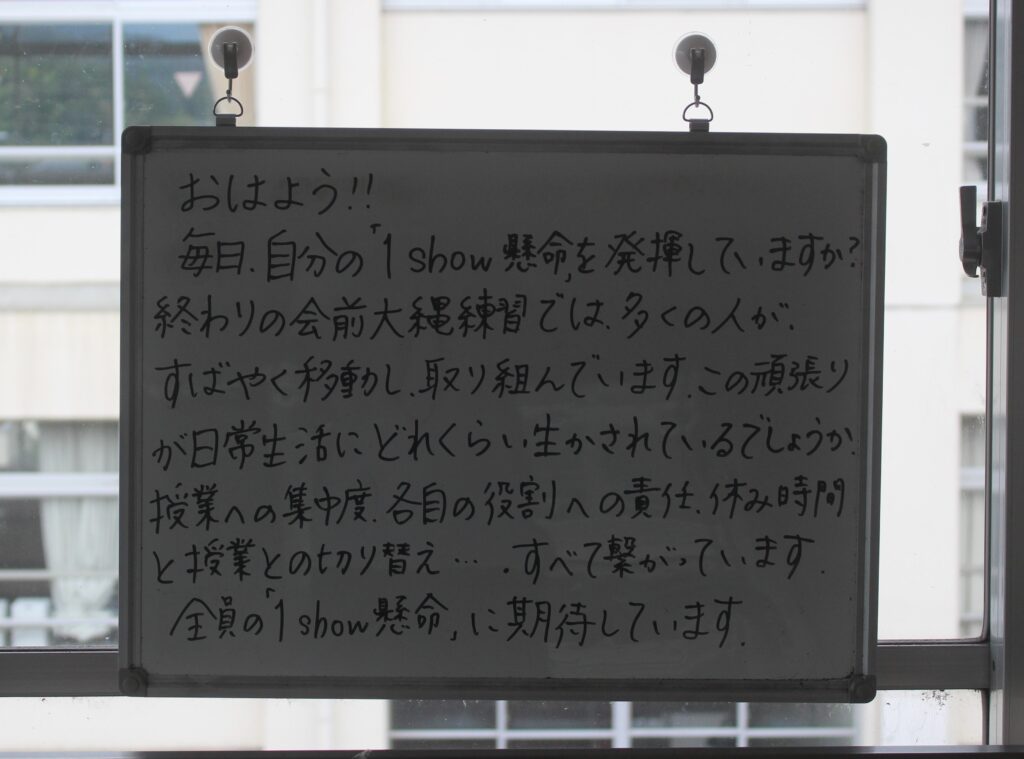 おはよう!!
毎日、自分の「1 show 懸命」を発揮していますか?
終わりの会前大縄練習では、多くの人が、
すばやく移動し、取り組んでいます。この頑張り
が日常生活にどれくらい生かされているでしょうか。
授業への集中度、各自の役割への責任、休み時間
と授業との切り替え…。すべて繋がっています。
全員の「1 show 懸命」に期待しています。